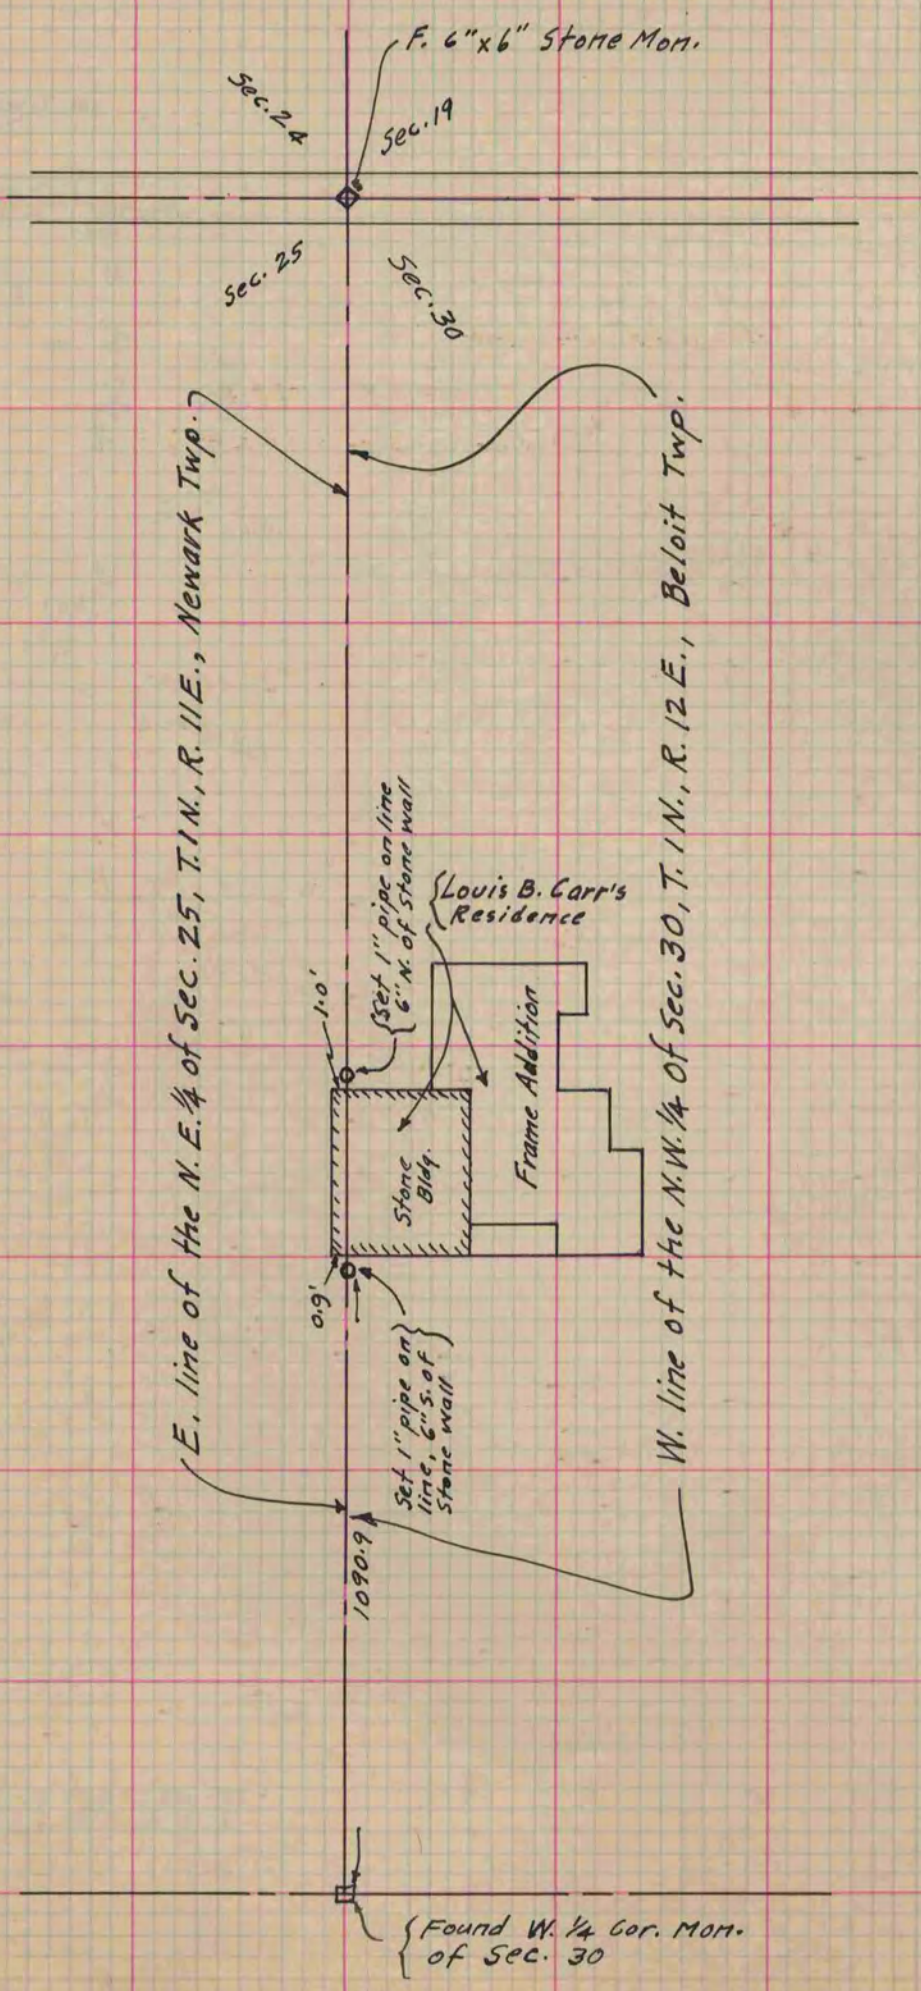 F. 6"x6" Stone Mon.
Sec. 24
Sec. 19
Sec. 25
Sec. 30
E. line of the N.E. ¼ of Sec. 25, T. 1 N., R. 11 E., Newark Twp.
W. line of the N.W. ¼ of Sec. 30, T. 1 N., R. 12 E., Beloit Twp.
Set 1" pipe on line
6" N. of stone wall
Louis B. Carr's
Residence
1.0'
Frame Addition
Stone
Bldg.
0.9'
Set 1" pipe on
line, 6" S. of
Stone wall
1090.9
Found W. ¼ Cor. Mon.
of Sec. 30